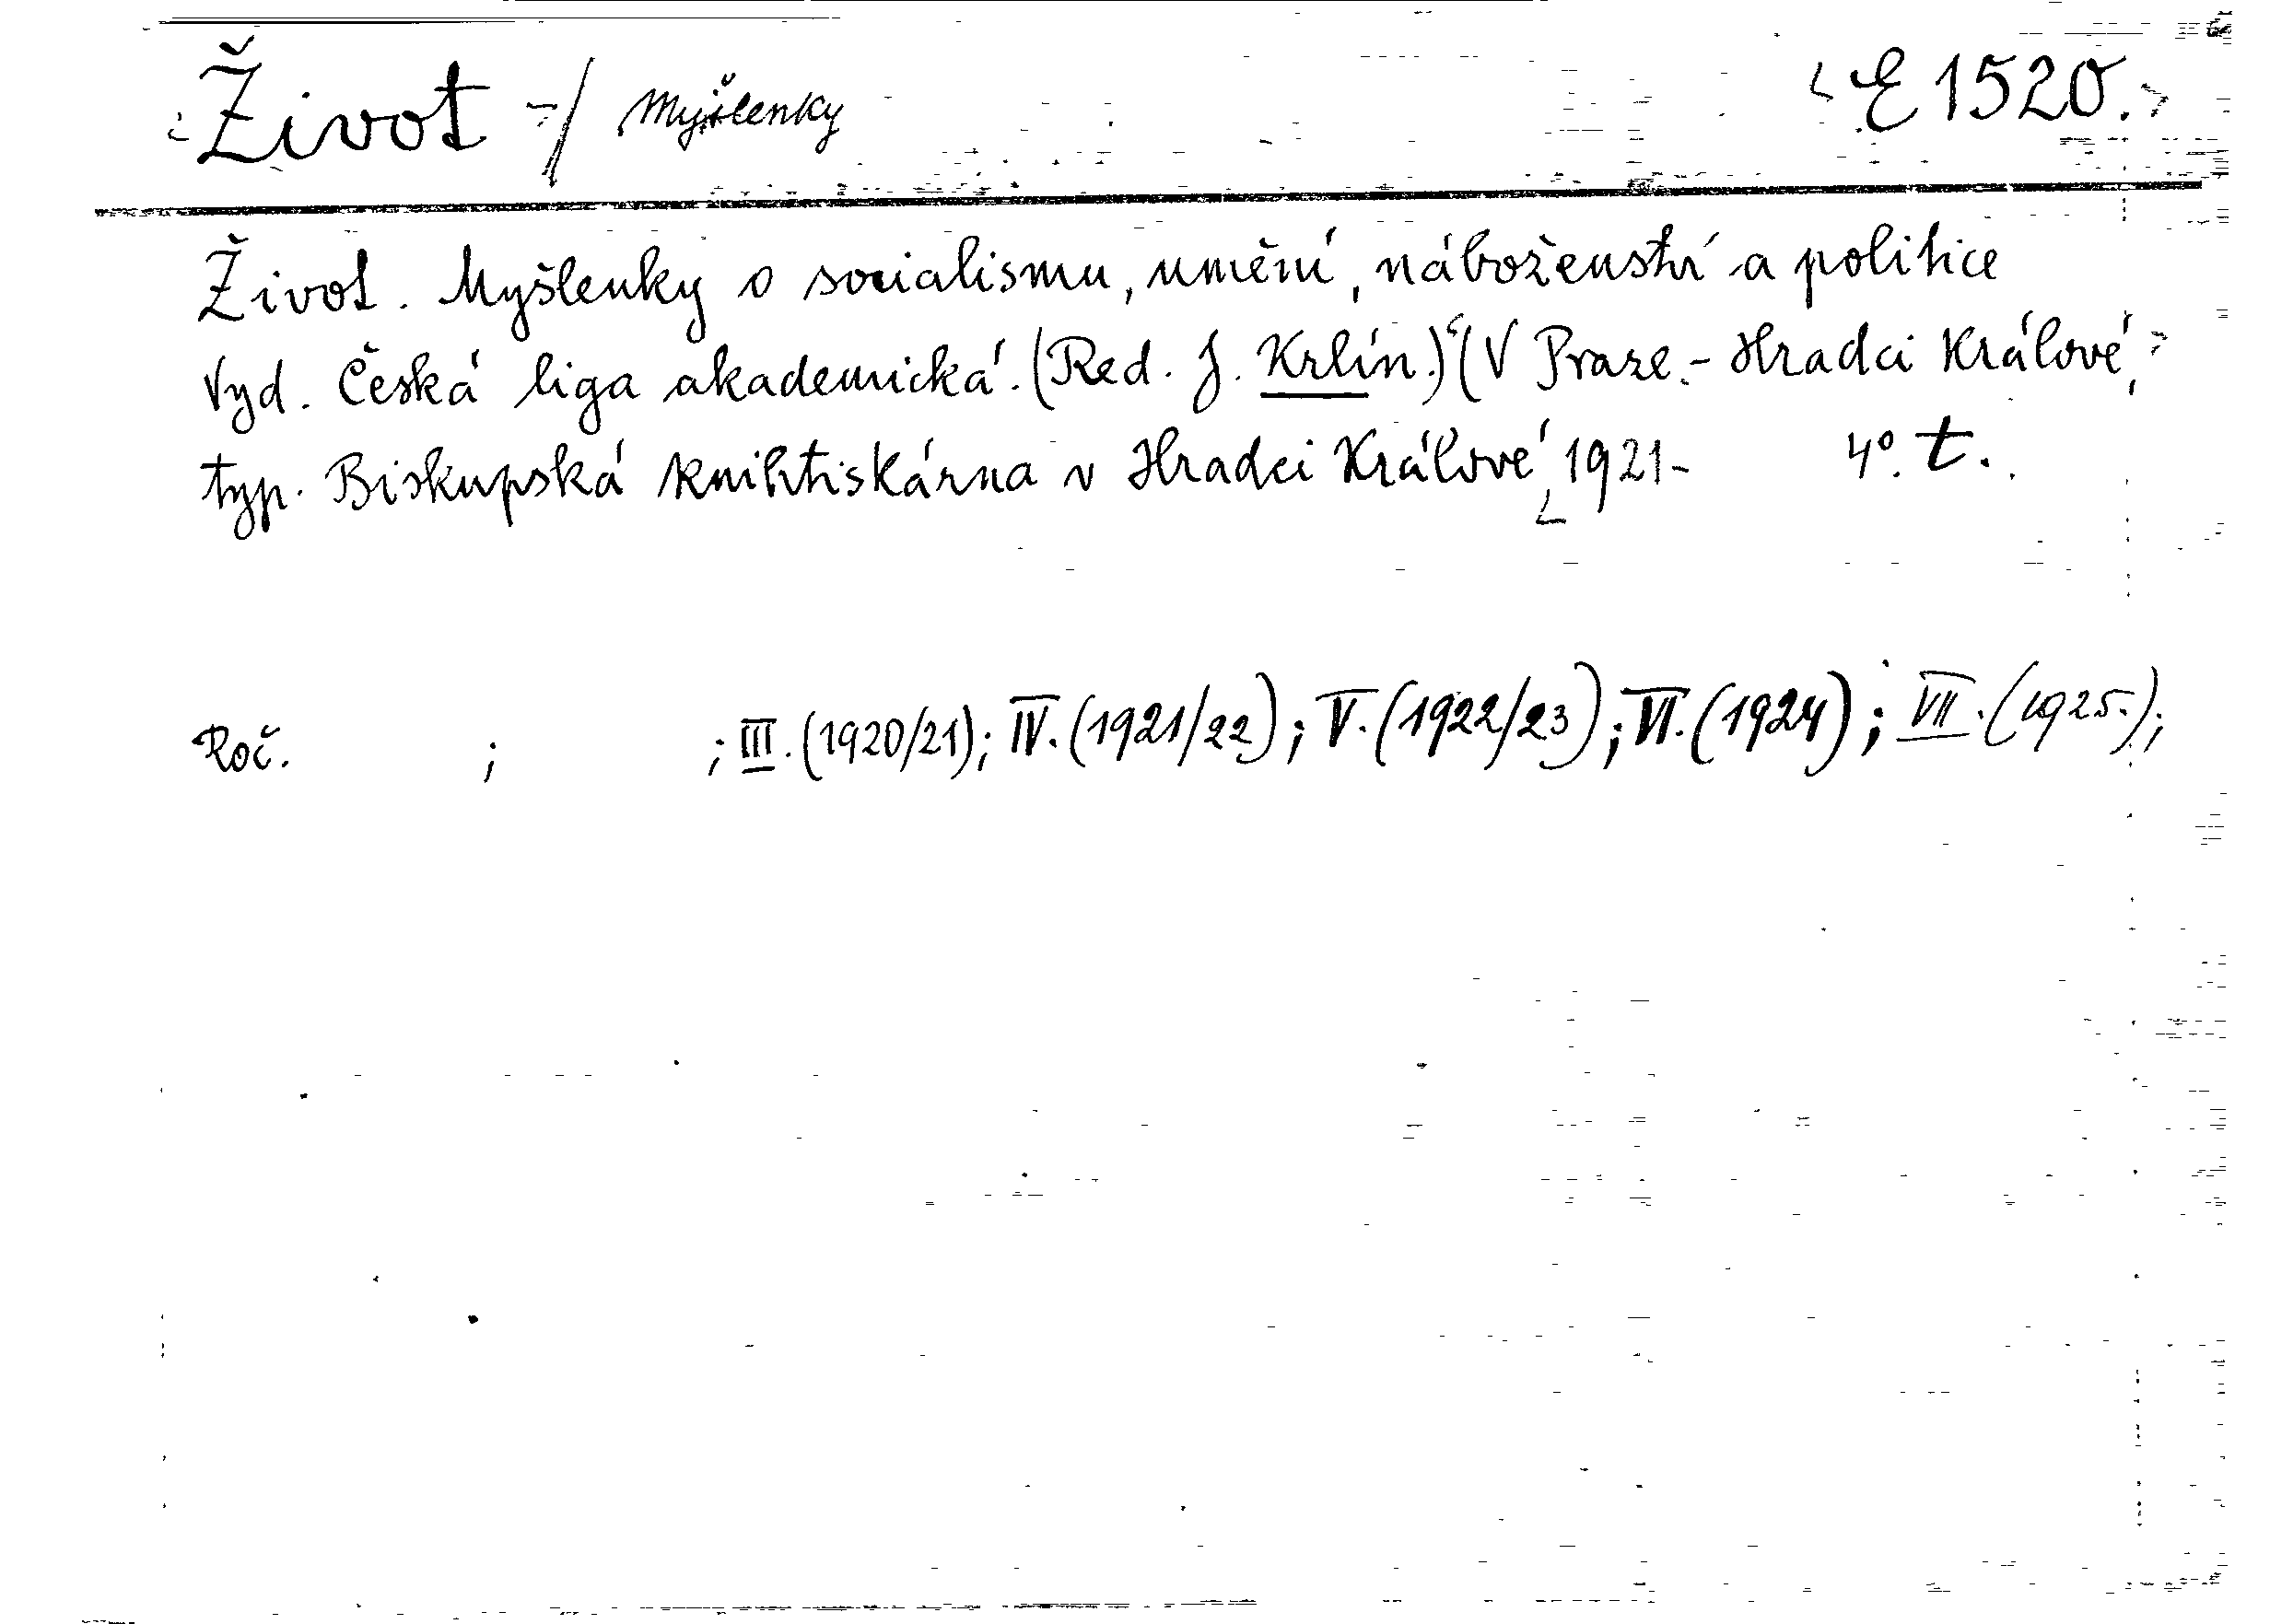 Život / Myšlenky E 1520.
Život. Myšlenky o socialismu, umění, náboženství a politice
Vyd. Česká liga akademická. (Red. J. Krlín.) (V Praze.- Hradci Králové,
typ. Biskupská knihtiskárna v Hradci Králové, 1921- 4°. t.
Roč. ; ; III. (1920/21); IV. (1921/22); V. (1922/23); VI. (1924); VII. (1925.);